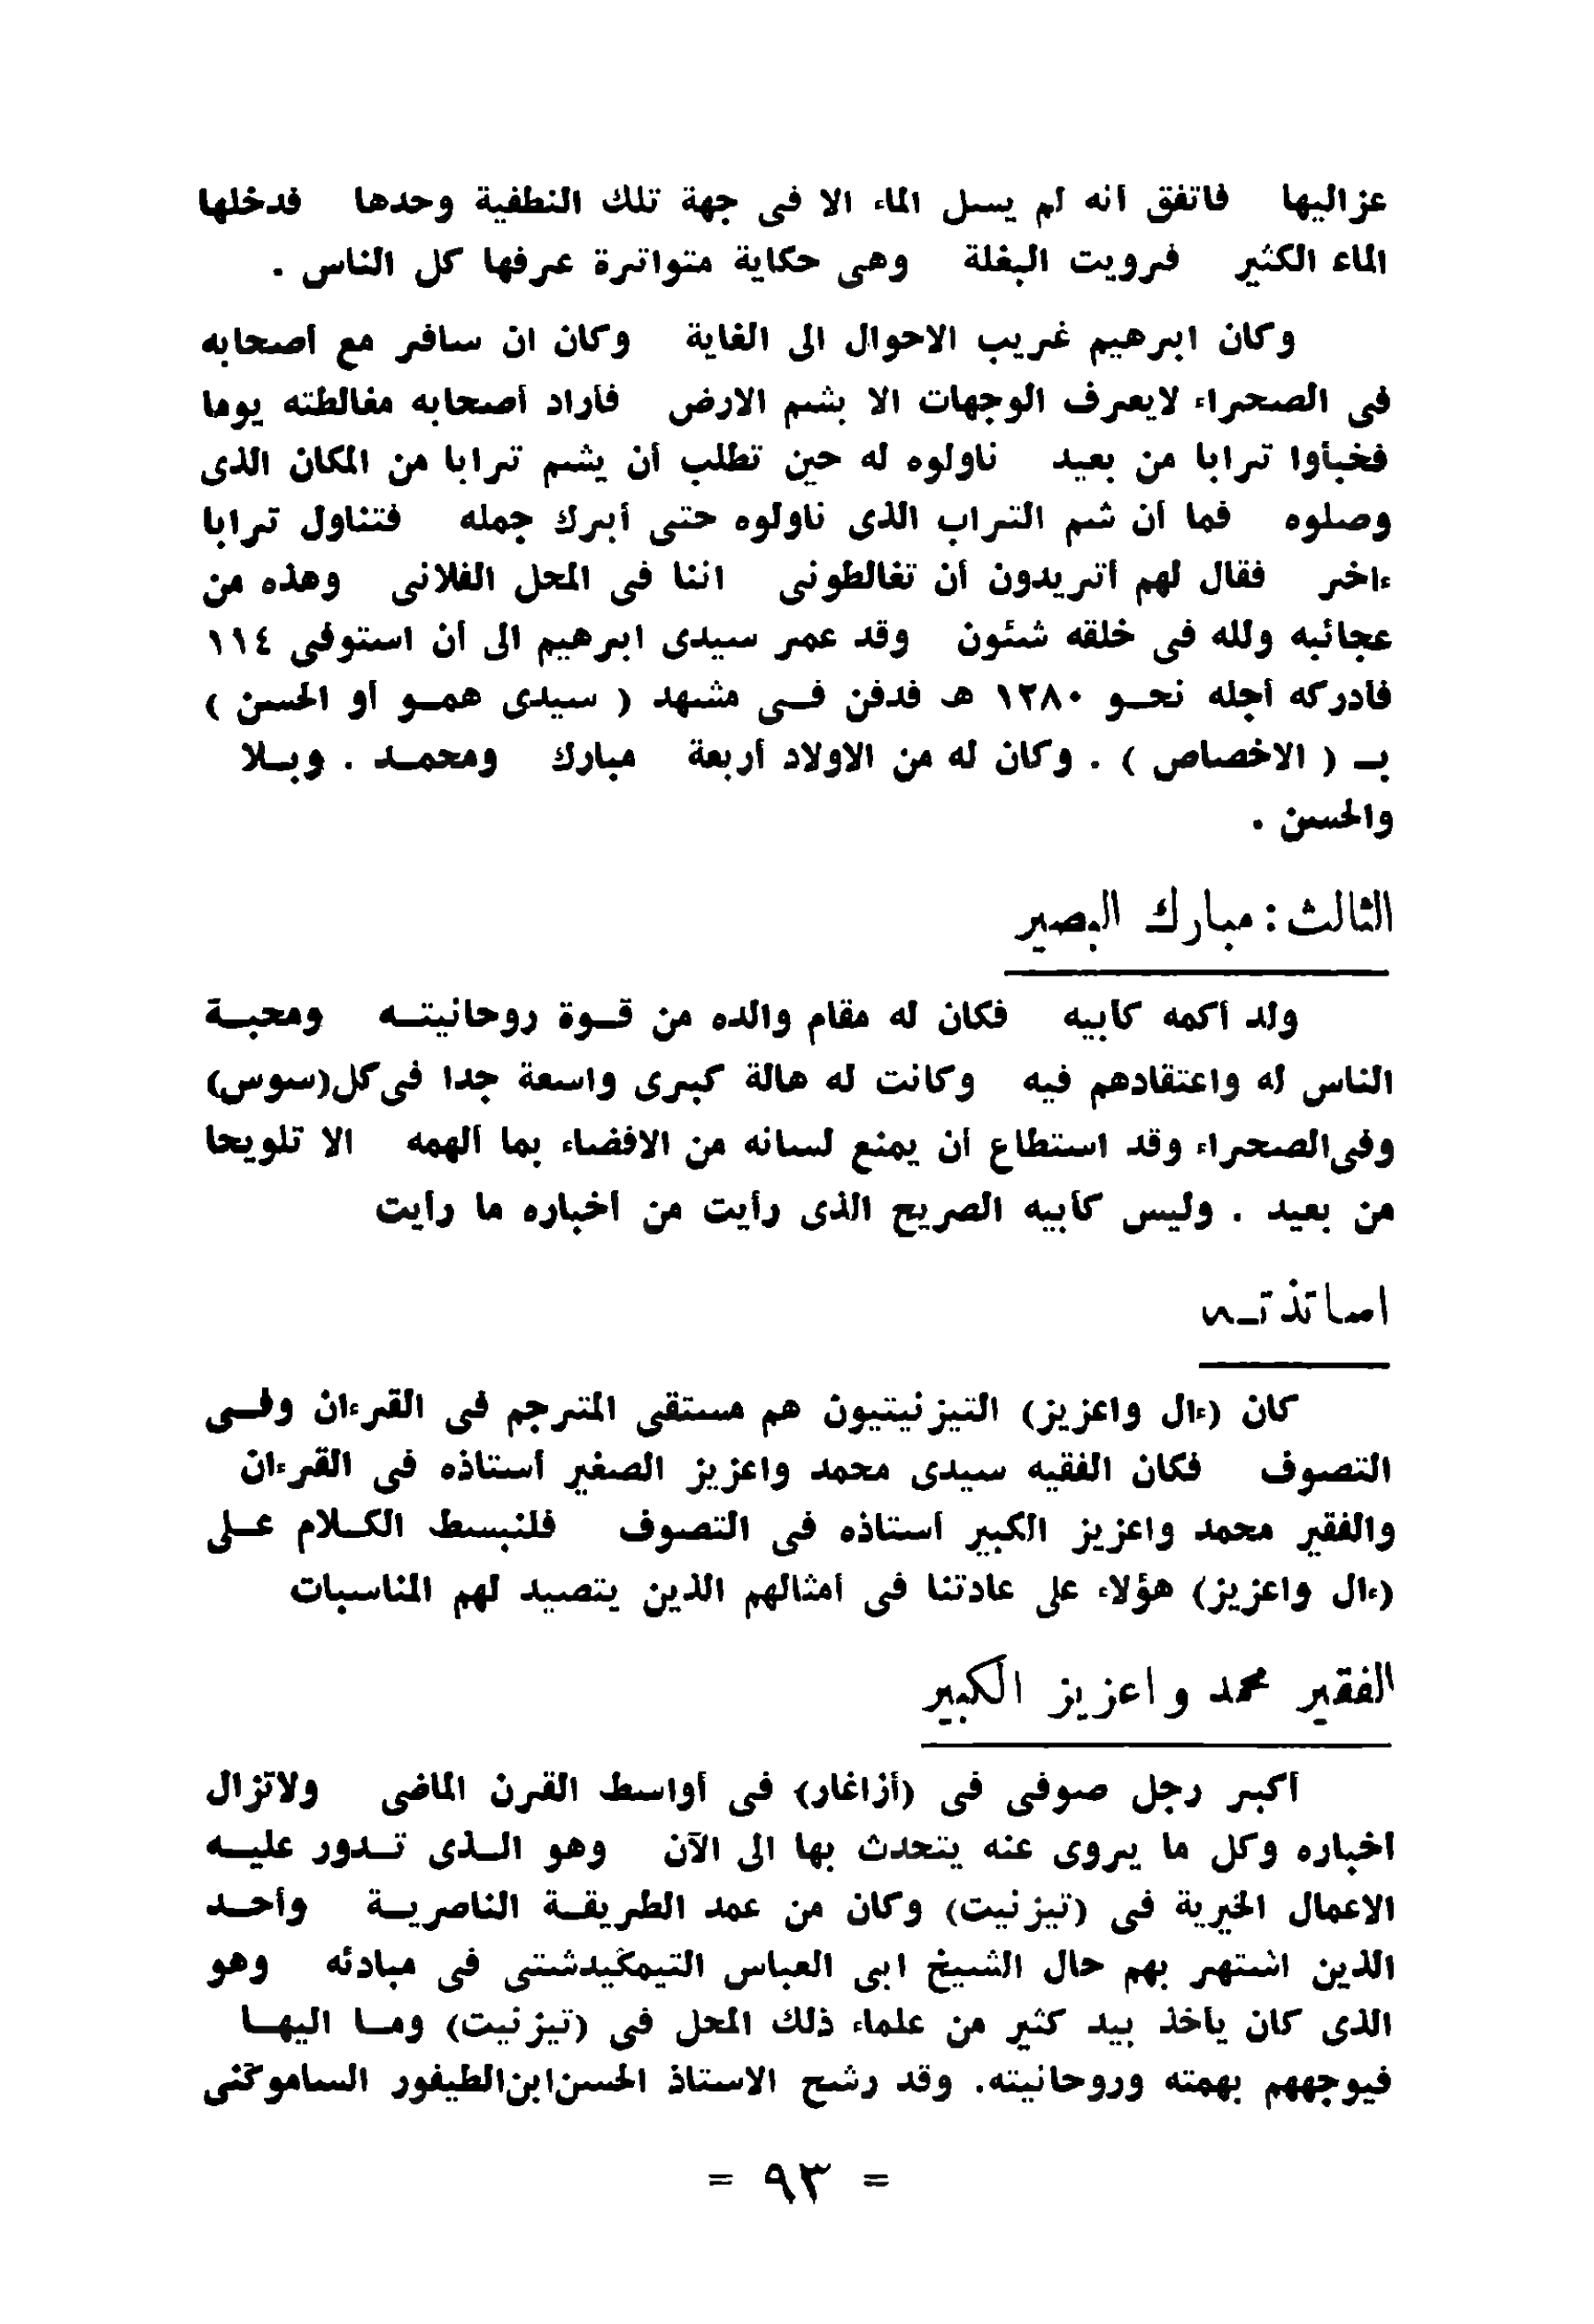 عزاليها فاتفق أنه لم يسل الماء الا فى جهة تلك النطفية وحدها فدخلها
الماء الكثير فرويت البغلة وهى حكاية متواترة عرفها كل الناس .
وكان ابرهيم غريب الاحوال الى الغاية وكان ان سافر مع أصحابه
فى الصحراء لايعرف الوجهات الا بشم الارض فأراد أصحابه مغالطته يوما
فخبأوا ترابا من بعيد ناولوه له حين تطلب أن يشم ترابا من المكان الذى
وصلوه فما أن شم التراب الذى ناولوه حتى أبرك جمله فتناول ترابا
ءاخر فقال لهم أتريدون أن تغالطونى اننا فى المحل الفلانى وهذه من
عجائبه ولله فى خلقه شئون وقد عمر سيدى ابرهيم الى أن استوفى ١١٤
فأدركه أجله نحـو ١٢٨٠ هـ فدفن فـى مشهد ( سيدى همـو أو الحسن )
بـ ( الاخصاص ) . وكان له من الاولاد أربعة مبارك ومحمـد . وبـلا
والحسن .
الثالث : مبارك البصير
ولد أكمه كأبيه فكان له مقام والده من قـوة روحانيتـه ومحبـة
الناس له واعتقادهم فيه وكانت له هالة كبرى واسعة جدا فى كل (سوس)
وفى الصحراء وقد استطاع أن يمنع لسانه من الافضاء بما ألهمه الا تلويحا
من بعيد . وليس كأبيه الصريح الذى رأيت من أخباره ما رأيت
اساتذتـه
كان (ءال واعزيز) التيزنيتيون هم مستقى المترجم فى القرءان وفـى
التصوف فكان الفقيه سيدى محمد واعزيز الصغير أستاذه فى القرءان
والفقير محمد واعزيز الكبير أستاذه فى التصوف فلنبسط الكـلام عـلى
(ءال واعزيز) هؤلاء على عادتنا فى أمثالهم الذين يتصيد لهم المناسبات
الفقير محمد واعزيز الكبير
أكبر رجل صوفى فى (أزاغار) فى أواسط القرن الماضى ولاتزال
أخباره وكل ما يروى عنه يتحدث بها الى الآن وهو الـذى تـدور عليـه
الاعمال الخيرية فى (تيزنيت) وكان من عمد الطريقـة الناصريـة وأحـد
الذين اشتهر بهم حال الشيخ ابى العباس التيمڭيدشتى فى مبادئه وهو
الذى كان يأخذ بيد كثير من علماء ذلك المحل فى (تيزنيت) ومـا اليهـا
فيوجههم بهمته وروحانيته. وقد رشح الاستاذ الحسن ابن الطيفور الساموڭنى
= ٩٣ =